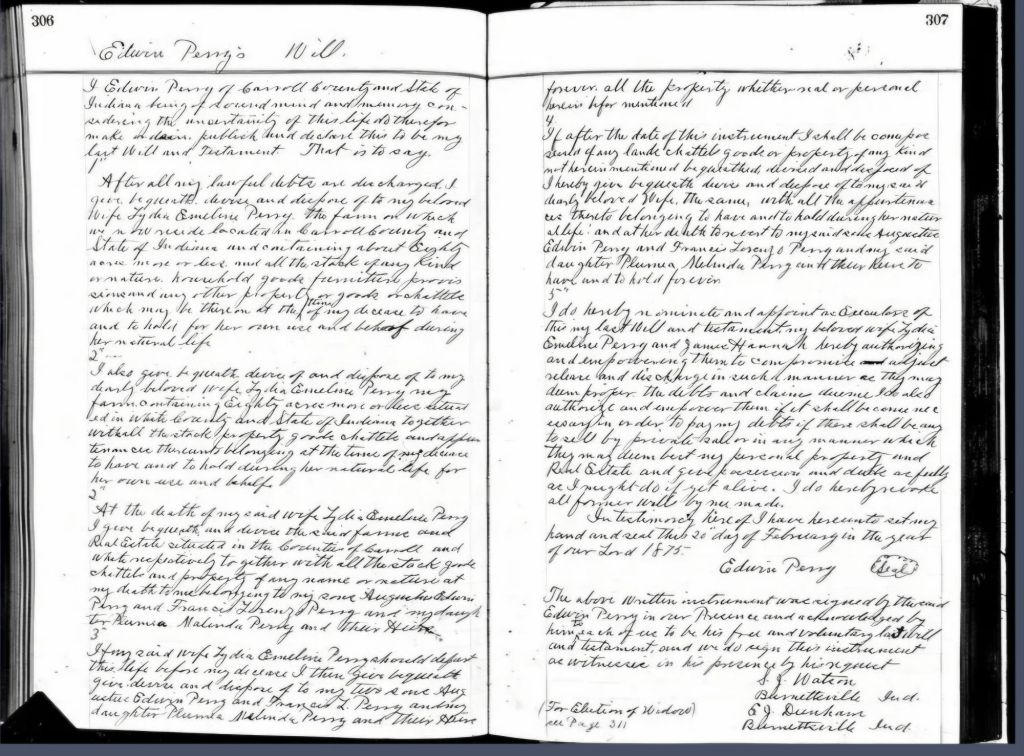 306
Edwin Perry's Will.
I Edwin Perry of Carroll County and State of
Indiana being of sound mind and memory con-
sidering the uncertainty of this life do therefor
make publish and declare this to be my
last Will and Testament That is to say.
1"
After all my lawful debts are discharged I
give bequeath, devise and dispose of to my beloved
Wife Lydia Emeline Perry. The farm on which
we now reside located in Carroll County and
State of Indiana and containing about Eighty
acres more or less, and all the stock of any Kind
or nature. household goods furniture provis
sions and any other property or goods or chattels
which may be thereon at the time of my decease to have
and to hold for her own use and behoof during
her natural life
2"
I also give bequeath devise of and dispose of to my
dearly beloved wife Lydia Emeline Perry my
farm containing Eighty acres more or less situat
ed in White County and State of Indiana together
with all the stock property goods chattels and appur
tenances thereunto belonging at the time of my decease
to have and to hold during her natural life for
her own use and behalf
2"
At the death of my said wife Lydia Emeline Perry
I give bequeath, and devise the said farms and
Real Estate situated in the Counties of Carroll and
White respectively to gether with all the stock goods
chattels and property of any name or nature at
my death to me belonging to my sons Augustus Edwin
Perry and Francis Lorenzo Perry and my daugh
ter Plumea Malinda Perry and their Heirs
3"
If my said wife Lydia Emeline Perry should depart
this life before my decease I then give bequeath
give devise and dispose of to my two sons Aug
ustus Edwin Perry and Francis L. Perry and my
daughter Plumea Malinda Perry and their Heirs
307
forever. all the property whether real or personal
herein befor mentioned
4.
If after the date of this instrument I shall be compos
sessed of any lands chattels goods or property of any Kind
not herein mentioned bequeathed, devised and disposed of
I hereby give bequeath devise and dispose of to my said
dearly beloved Wife. the same, with all the appurtenan
ces thereto belonging to have and to hold during her natur
al life: and at her death to revert to my said sons Augustus
Edwin Perry and Francis Lorenzo Perry and my said
daughter Plumea Melinda Perry and their heirs to
have and to hold forever
5"
I do hereby nominate and appoint as Executors of
this my last Will and testament. my beloved wife Lydia
Emeline Perry and James Hannah hereby authorizing
and empowering them to compromise adjust
release and discharge in such a manner as they may
deem proper the debts and claims due me I do also
authorize and empower them if it shall become nec
essary in order to pay my debts if there shall be any
to sell by private sale or in any manner which
they may deem best my personal property and
Real Estate and give possession and deeds as fully
as I might do if yet alive. I do hereby revoke
all former wills by me made.
In testimony hereof I have hereunto set my
hand and seal this 20" day of February in the year
of our Lord 1875
Edwin Perry Seal
The above written instrument was signed by the said
Edwin Perry in our Presence and acknowledged by
him to each of us to be his free and voluntary last Will
and testament, and we do sign this instrument
as witnesses in his presence by his request
S. J. Watson
Burnettsville Ind.
E J. Dunham
Burnettsville Ind
(For Election of Widow)
see Page 311